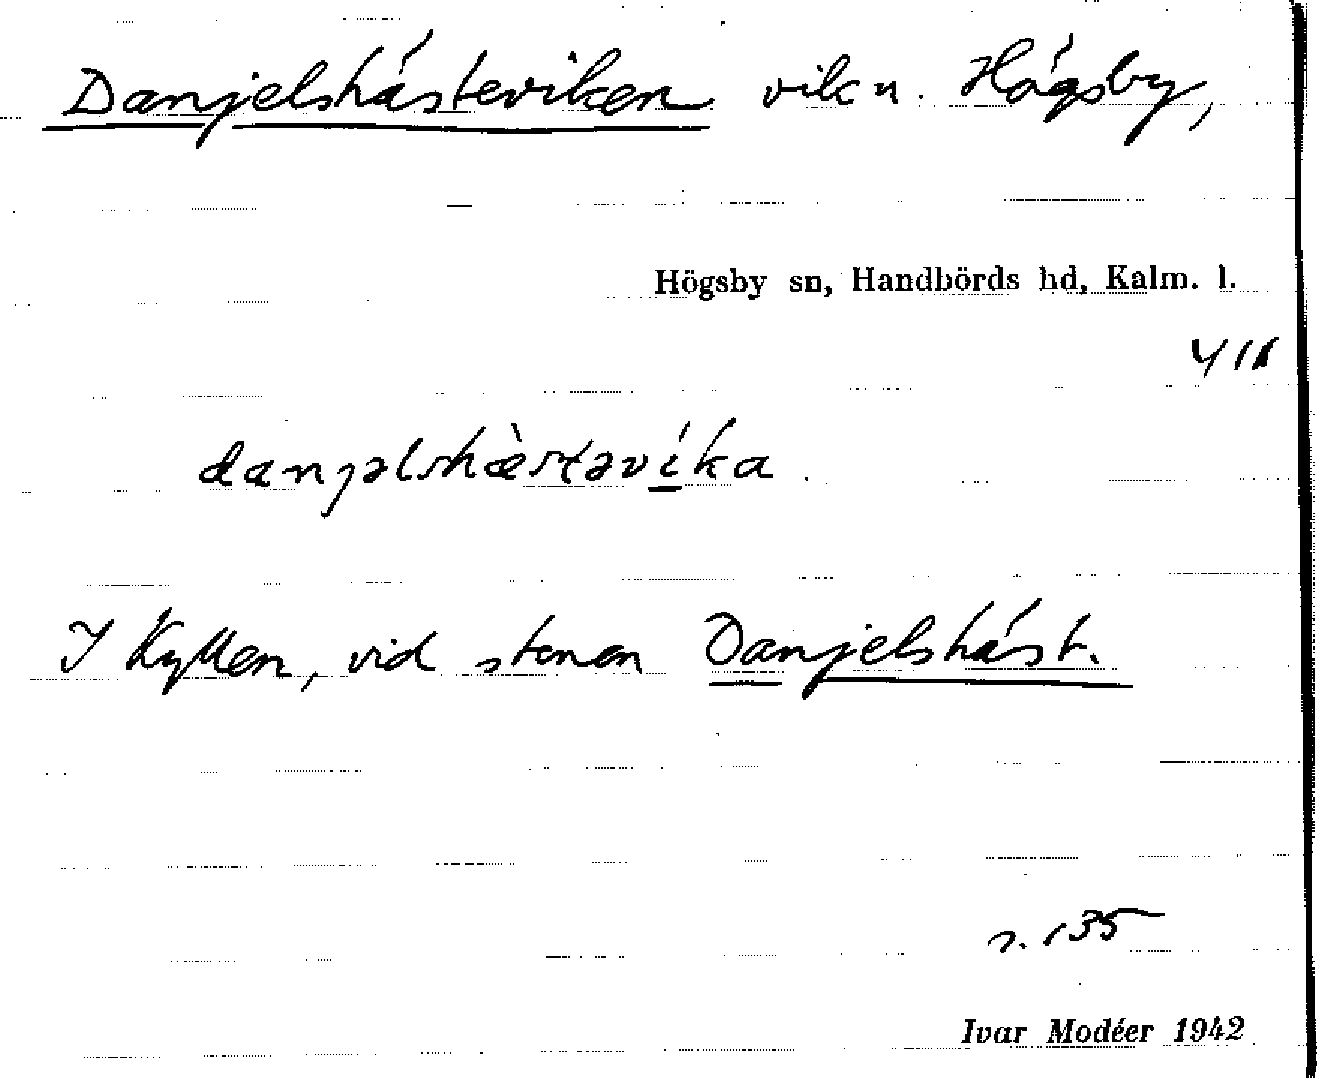 Danjelshásteviken vik n. Hógsby,
Högsby sn, Handbörds hd, Kalm. l.
danjəlshæ̀stəvíka.
I Kyllen, vid stenen Danjelshást.
s. 135
Ivar Modéer 1942